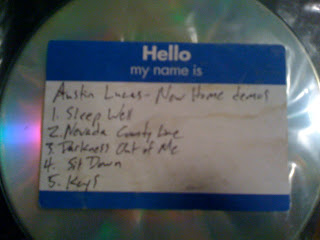 Hello
my name is
Austin Lucas - New Home demos
1. Sleep Well
2. Nevada County Line
3. Darkness Out of Me
4. Sit Down
5. Keys